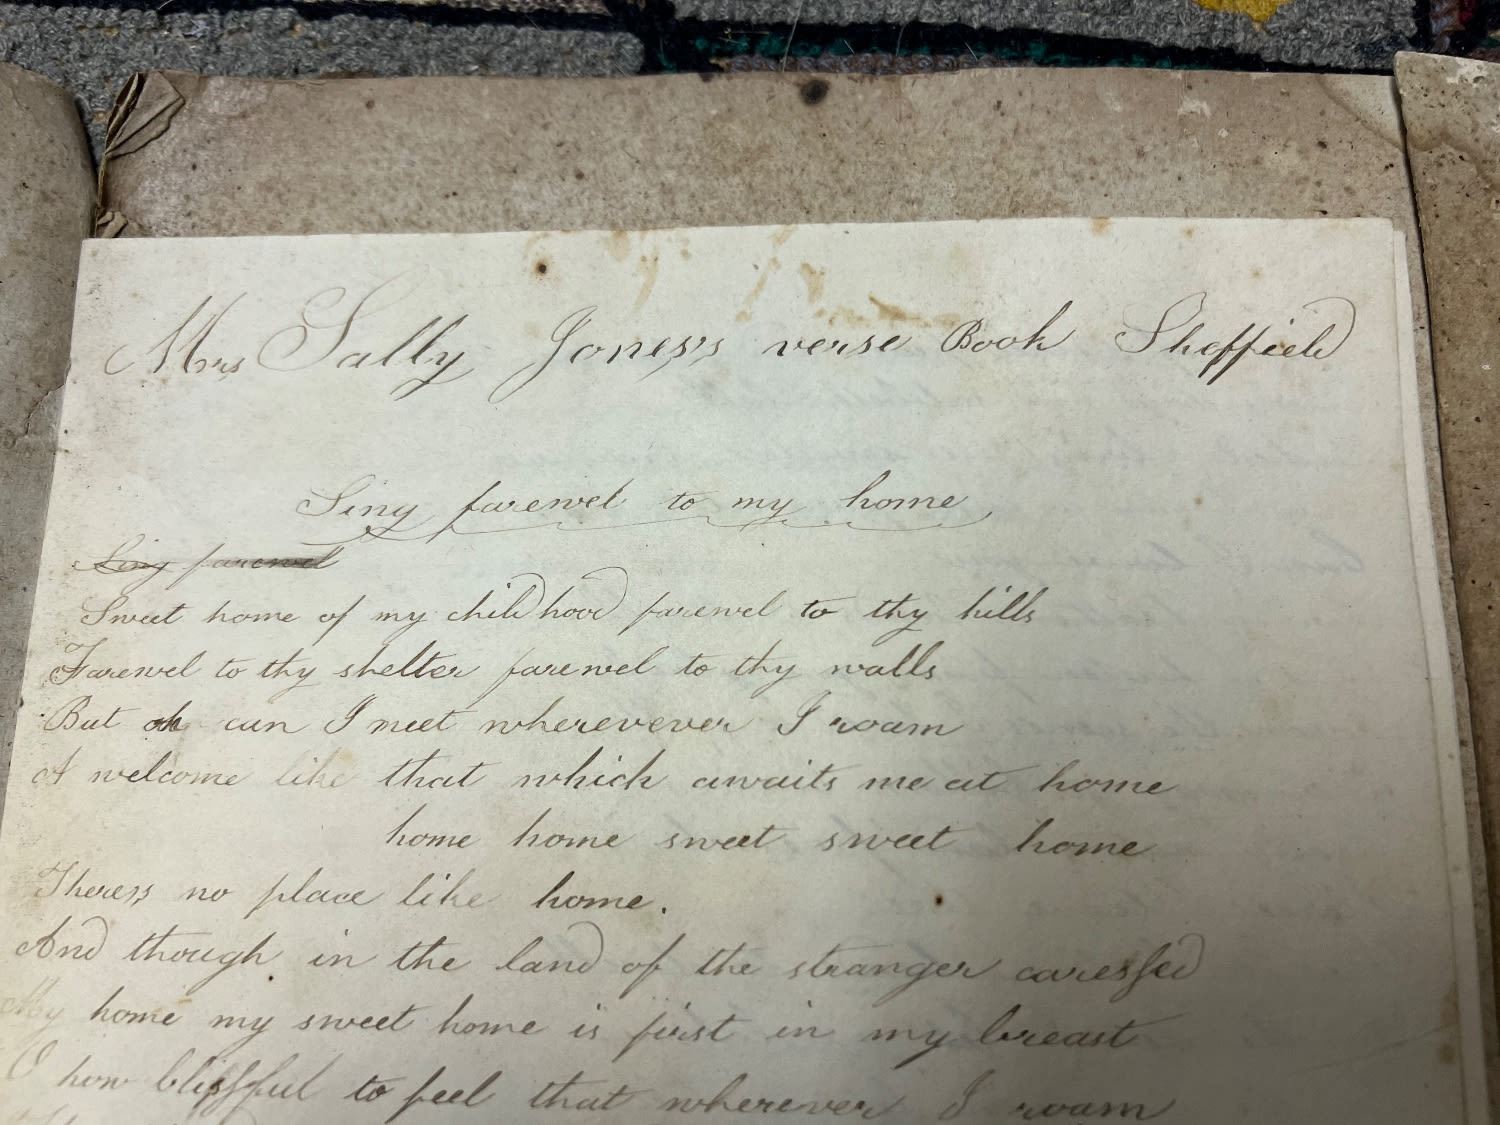 Mrs Sally Jones,s verse Book Sheffield
Sing farewel to my home
Sing farewel
Sweet home of my childhood farewel to thy hills
Farewel to thy shelter farewel to thy walls
But oh can I meet wherevever I roam
A welcome like that which awaits me at home
home home sweet sweet home
Theres,s no place like home.
And though in the land of the stranger caressed
My home my sweet home is first in my breast
O how blissful to feel that wherever I roam